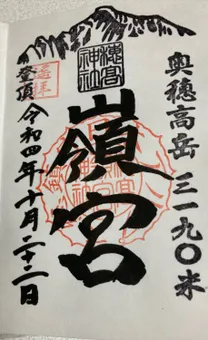 奥穂高岳 三一九〇米
穂高神社
嶺宮
遥拝
登頂 令和四年十月二十二日